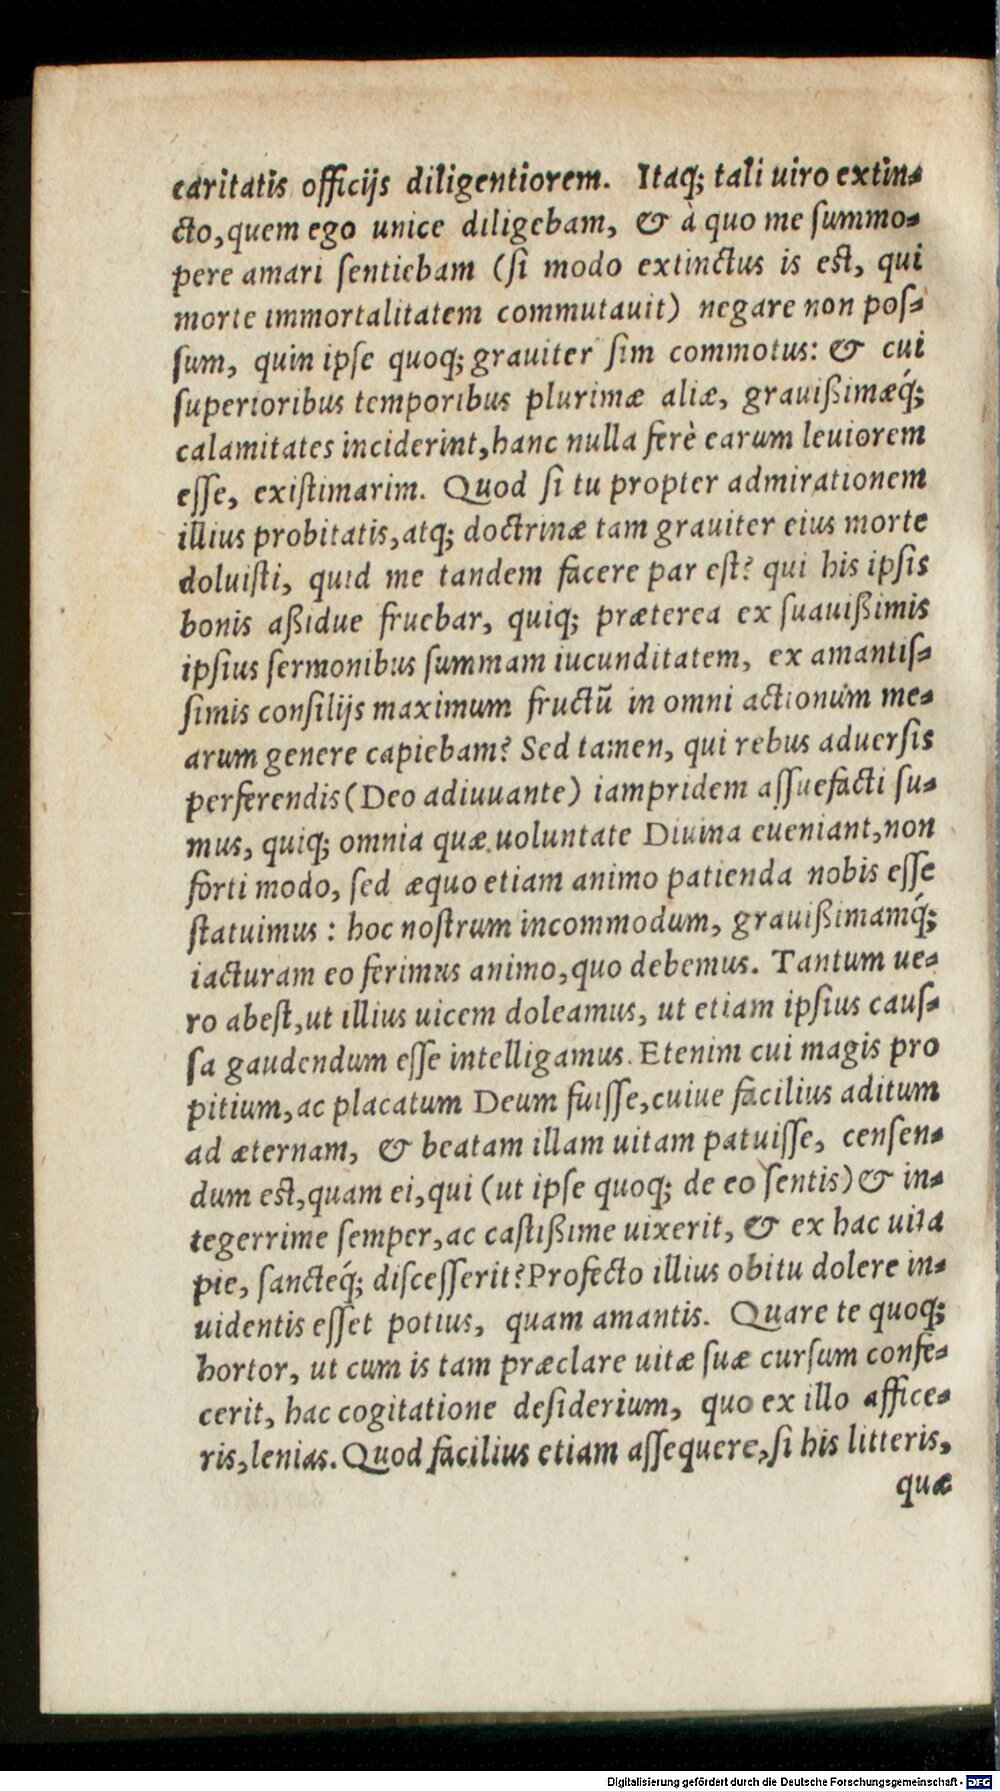 caritatis officijs diligentiorem. Itaq; tali uiro extin-
cto, quem ego unice diligebam, & à quo me summo-
pere amari sentiebam (si modo extinctus is est, qui
morte immortalitatem commutauit) negare non pos-
sum, quin ipse quoq; grauiter sim commotus: & cui
superioribus temporibus plurimæ aliæ, grauißimæq́;
calamitates inciderint, hanc nulla ferè earum leuiorem
esse, existimarim. Quod si tu propter admirationem
illius probitatis, atq; doctrinæ tam grauiter eius morte
doluisti, quid me tandem facere par est? qui his ipsis
bonis aßidue fruebar, quiq; præterea ex suauißimis
ipsius sermonibus summam iucunditatem, ex amantis-
simis consilijs maximum fructū in omni actionum me-
arum genere capiebam? Sed tamen, qui rebus aduersis
perferendis (Deo adiuuante) iampridem assuefacti su-
mus, quiq; omnia quæ uoluntate Diuina eueniant, non
forti modo, sed æquo etiam animo patienda nobis esse
statuimus: hoc nostrum incommodum, grauißimamq́;
iacturam eo ferimus animo, quo debemus. Tantum ue-
ro abest, ut illius uicem doleamus, ut etiam ipsius caus-
sa gaudendum esse intelligamus. Etenim cui magis pro
pitium, ac placatum Deum fuisse, cuiue facilius aditum
ad æternam, & beatam illam uitam patuisse, censen-
dum est, quam ei, qui (ut ipse quoq; de eo sentis) & in-
tegerrime semper, ac castißime uixerit, & ex hac uita
pie, sancteq́; discesserit? Profecto illius obitu dolere in-
uidentis esset potius, quam amantis. Quare te quoq;
hortor, ut cum is tam præclare uitæ suæ cursum confe-
cerit, hac cogitatione desiderium, quo ex illo affice-
ris, lenias. Quod facilius etiam assequere, si his litteris,
quæ
Digitalisierung gefördert durch die Deutsche Forschungsgemeinschaft - DFG